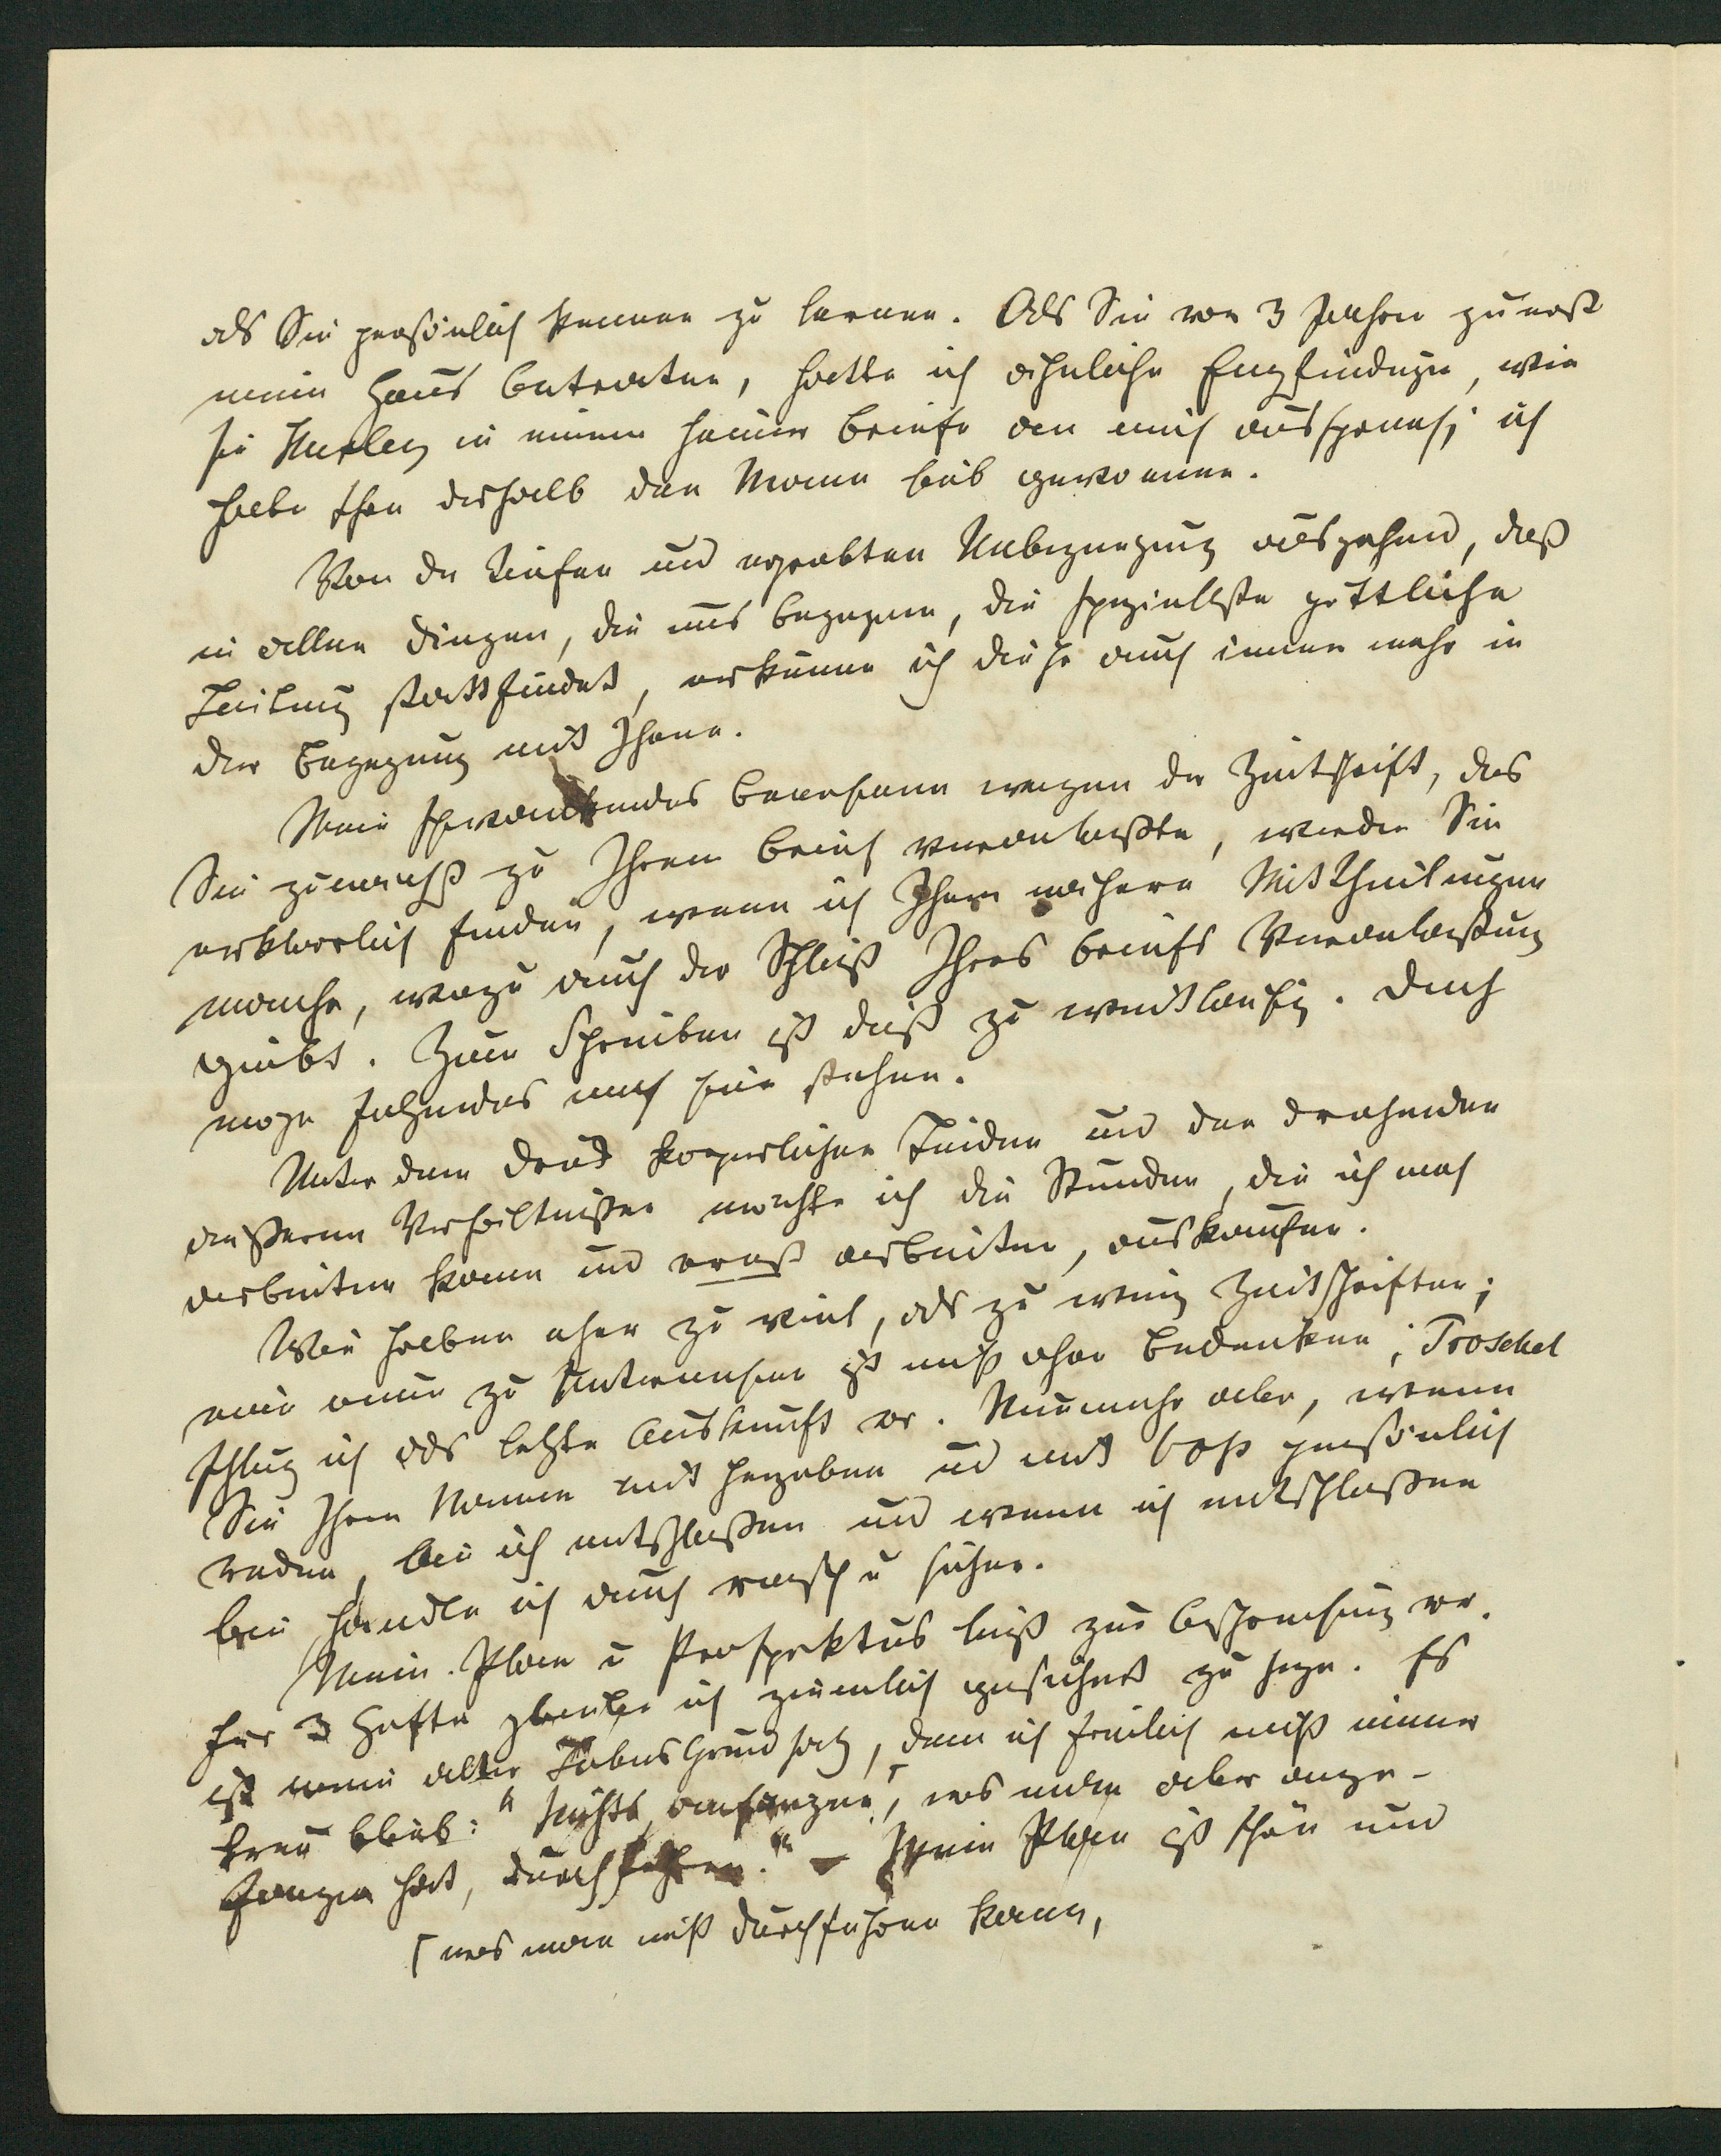 als Sie persönlich kennen zu lernen. Als Sie vor 3 Jahren zuerst
mein Haus betraten, hatte ich ähnliche Empfindungen, wie
sie in einem seiner Briefe an mich aussprach; ich
habe schon deshalb den Mann lieb gewonnen.
Von der tiefen und erprobten Ueberzeugung ausgehend, daß
in allen Dingen, die uns begegnen, die speziellste göttliche
Leitung stattfindet, erkenne ich diese auch immer mehr in
der Begegnung mit Ihnen.
Mein schwankendes Benehmen wegen der Zeitschrift, das
Sie zunächst zu Ihrem Brief veranlaßte, werden Sie
erklärlich finden, wenn ich Ihnen nähere Mittheilungen
mache, wozu auch der Schluß Ihres Briefs Veranlaßung
giebt. Zum Schreiben ist dieß zu weitläufig. Doch
möge Folgendes noch hier stehen.
Unter dem Druck körperlicher Leiden und den drohenden
äußeren Verhältnißen möchte ich die Stunden, die ich noch
arbeiten kann und muß arbeiten, auskaufen.
Wir haben eher zu viel, als zu wenig Zeitschriften;
eine neue zu unternehmen ist nicht ohne Bedenken; Troschel
schlug ich als letzte Auskunft vor. Nunmehr aber, wenn
Sie Ihren Namen mit hergeben und mit persönlich
reden, bin ich entschloßen und wenn ich entschloßen
bin handle ich auch rasch u sicher.
Mein Plan u Prospektus liegt zur Besprechung vor.
Für 3 Hefte glaube ich ziemlich gesichert zu seyn. Es
ist mein alter Lebensgrundsatz, dem ich freilich nicht immer
treu blieb: "Nichts anfangen, was man aber ange-
fangen hat, durchführen." – Mein Plan ist schön und
⌈ was man nicht durchführen kann,